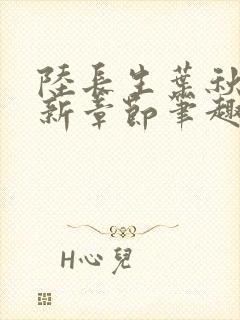 陸長生葉秋
新章節筆趣
H心兒